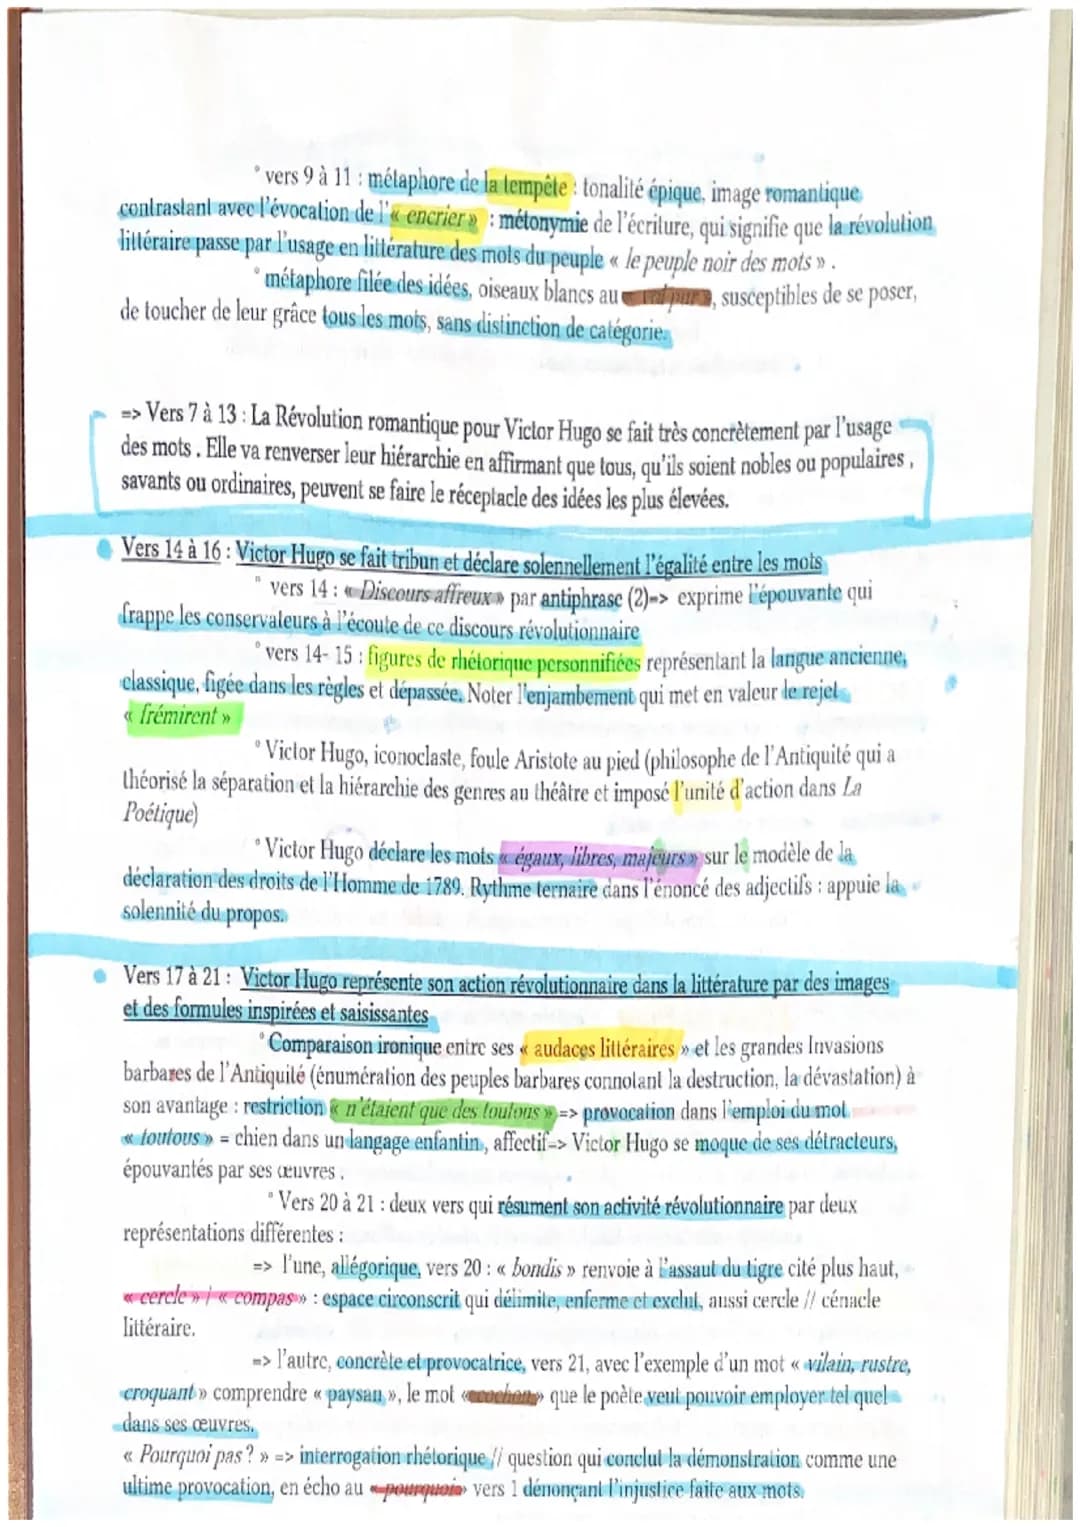 ° vers 9 à 11 : métaphore de la tempête : tonalité épique, image romantique
contrastant avec l'évocation de l'« encrier » : métonymie de l'écriture, qui signifie que la révolution
littéraire passe par l'usage en littérature des mots du peuple « le peuple noir des mots » .
° métaphore filée des idées, oiseaux blancs au « vol pur », susceptibles de se poser,
de toucher de leur grâce tous les mots, sans distinction de catégorie.
=> Vers 7 à 13 : La Révolution romantique pour Victor Hugo se fait très concrètement par l'usage
des mots . Elle va renverser leur hiérarchie en affirmant que tous, qu'ils soient nobles ou populaires ,
savants ou ordinaires, peuvent se faire le réceptacle des idées les plus élevées.
Vers 14 à 16 : Victor Hugo se fait tribun et déclare solennellement l'égalité entre les mots
° vers 14 : « Discours affreux » par antiphrase (2)=> exprime l'épouvante qui
frappe les conservateurs à l'écoute de ce discours révolutionnaire
° vers 14- 15 : figures de rhétorique personnifiées représentant la langue ancienne,
classique, figée dans les règles et dépassée. Noter l'enjambement qui met en valeur le rejet
« frémirent »
° Victor Hugo, iconoclaste, foule Aristote au pied (philosophe de l'Antiquité qui a
théorisé la séparation et la hiérarchie des genres au théâtre et imposé l'unité d'action dans La
Poétique)
° Victor Hugo déclare les mots « égaux, libres, majeurs » sur le modèle de la
déclaration des droits de l'Homme de 1789. Rythme ternaire dans l'énoncé des adjectifs : appuie la
solennité du propos.
Vers 17 à 21 : Victor Hugo représente son action révolutionnaire dans la littérature par des images
et des formules inspirées et saisissantes
° Comparaison ironique entre ses « audaces littéraires » et les grandes Invasions
barbares de l'Antiquité (énumération des peuples barbares connotant la destruction, la dévastation) à
son avantage : restriction « n'étaient que des toutous » => provocation dans l'emploi du mot
« toutous » = chien dans un langage enfantin, affectif=> Victor Hugo se moque de ses détracteurs,
épouvantés par ses œuvres .
° Vers 20 à 21 : deux vers qui résument son activité révolutionnaire par deux
représentations différentes :
=> l'une, allégorique, vers 20 : « bondis » renvoie à l'assaut du tigre cité plus haut,
« cercle » / « compas » : espace circonscrit qui délimite, enferme et exclut, aussi cercle // cénacle
littéraire.
=> l'autre, concrète et provocatrice, vers 21, avec l'exemple d'un mot « vilain, rustre,
croquant » comprendre « paysan », le mot « cochon » que le poète veut pouvoir employer tel quel
dans ses œuvres.
« Pourquoi pas ? » => interrogation rhétorique // question qui conclut la démonstration comme une
ultime provocation, en écho au « pourquoi » vers 1 dénonçant l'injustice faite aux mots.